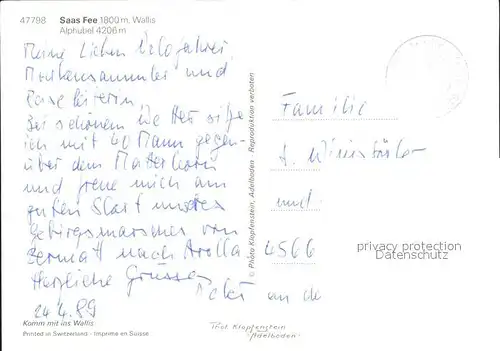 47798
Saas Fee 1800 m. Wallis
Alphubel 4206 m
Meine Lieben Velofahrer,
Markensammler und
Bei schönem Wetter sitze
ich mit 40 Mann gegen-
über dem Matterhorn
und freue mich am
guten Start unseres
Gebirgsmarsches von
Zermatt nach Arolla
Herzliche Grüsse
24.4.89
Komm mit ins Wallis
Printed in Switzerland - Imprimé en Suisse
© Photo Klopfenstein, Adelboden - Reproduktion verboten
Familie
und
4566
privacy protection
Datenschutz
Phot. Klopfenstein
Adelboden